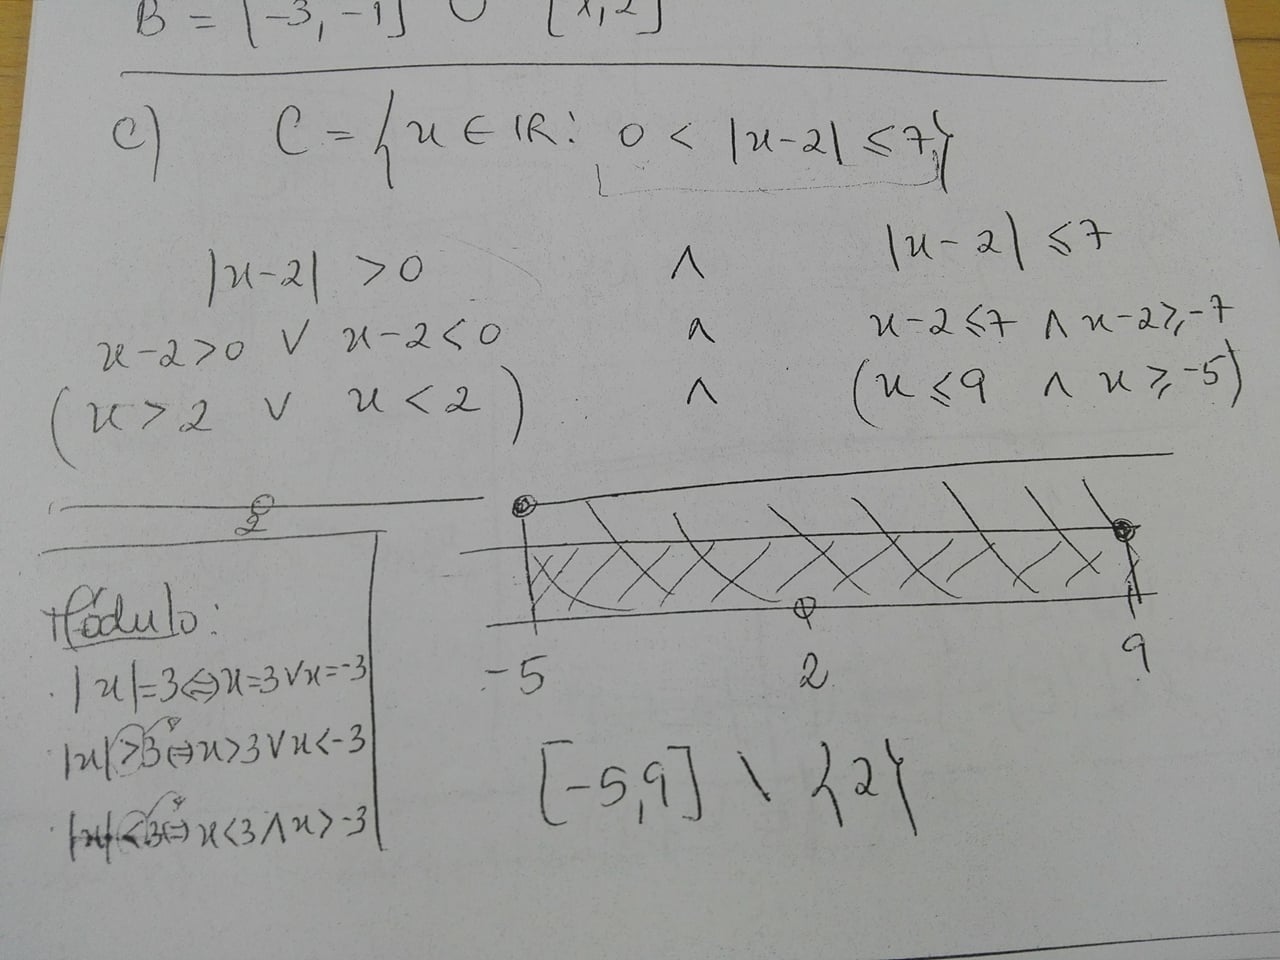 B = [-3, -1] ∪ [1,2]
c) C = {x ∈ IR: 0 < |x-2| ≤ 7}
|x-2| > 0 ∧ |x-2| ≤ 7
x-2>0 ∨ x-2<0 ∧ x-2≤7 ∧ x-2≥-7
(x>2 ∨ x<2) ∧ (x≤9 ∧ x≥-5)
2
-5 2 9
Módulo:
|x|=3⇔x=3∨x=-3
|x|>3⇔x>3∨x<-3
|x|<3⇔x<3∧x>-3
[-5,9] \ {2}